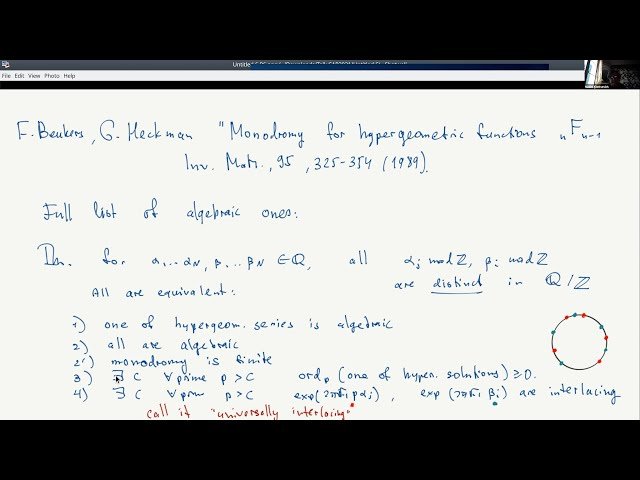 File Edit View Help
F. Beukers, G. Heckman "Monodromy for hypergeometric functions nFn-1
Inv. Math., 95, 325-354 (1989).
Full list of algebraic ones:
Thm. for α1...αN, β1...βN ∈ ℚ, all αj mod ℤ, βi mod ℤ
are distinct in ℚ/ℤ
All are equivalent:
1) one of hypergeom. series is algebraic
2) all are algebraic
2') monodromy is finite
3) ∃ C ∀ prime p > C ordp (one of hyper. solutions) ≥ 0.
4) ∃ C ∀ prime p > C exp(2πi pαj), exp(2πi βi) are interlacing
call it "universally interlacing"